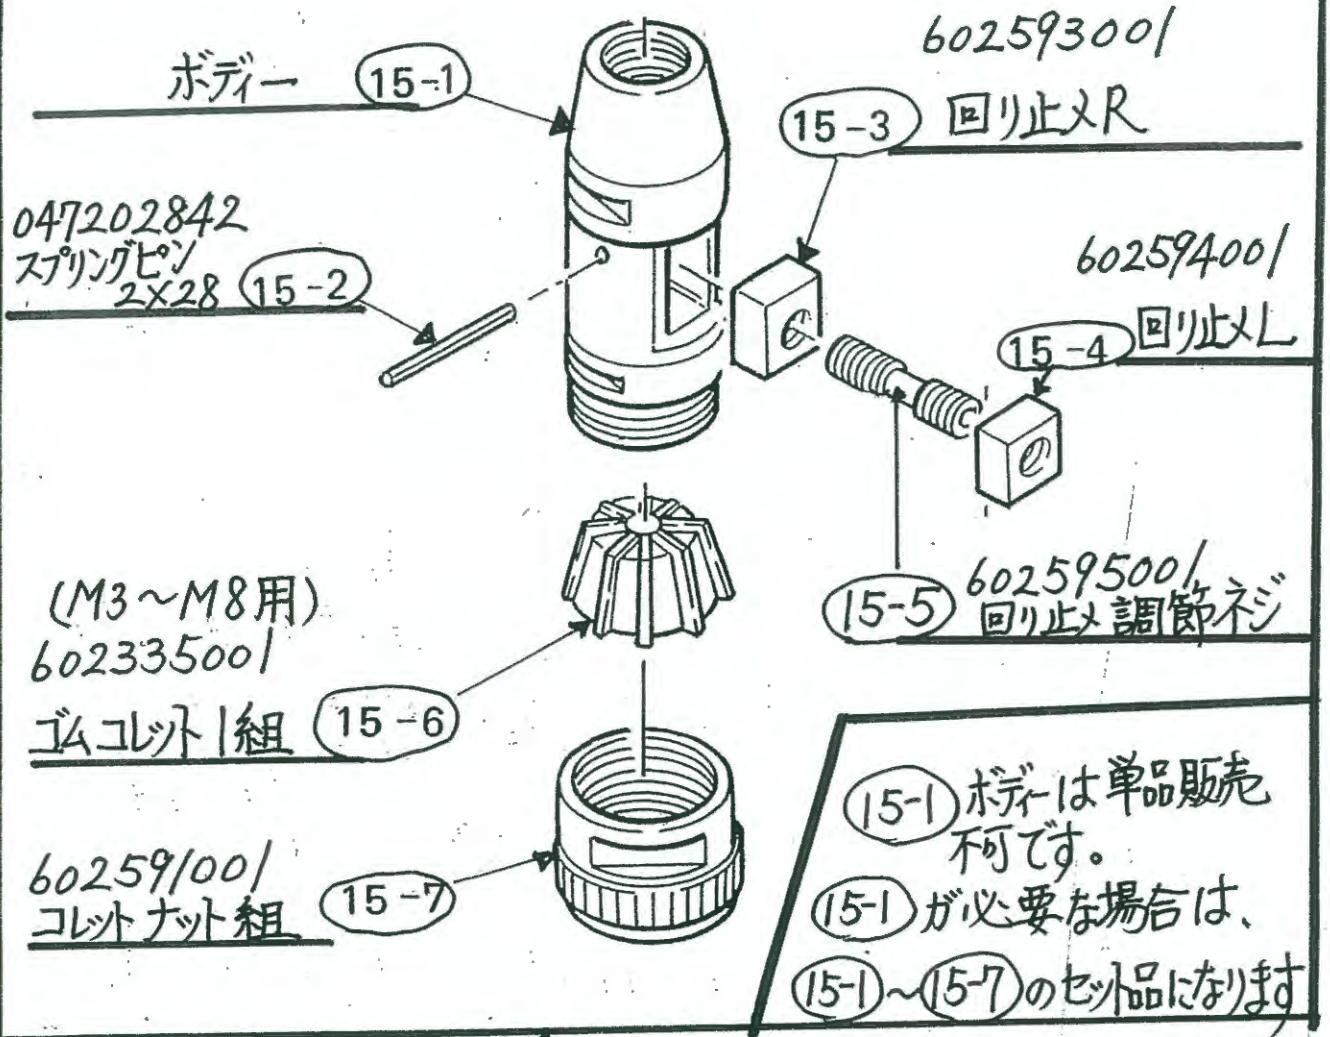 ボディー 15-1
602593001
15-3 回り止メR
047202842
スプリングピン
2×28 15-2
602594001
15-4 回り止メL
15-5 602595001
回り止メ調節ネジ
(M3~M8用)
602335001
ゴムコレット1組 15-6
602591001
コレットナット組 15-7
15-1 ボディーは単品販売
不可です。
15-1 が必要な場合は、
15-1~15-7のセット品になります